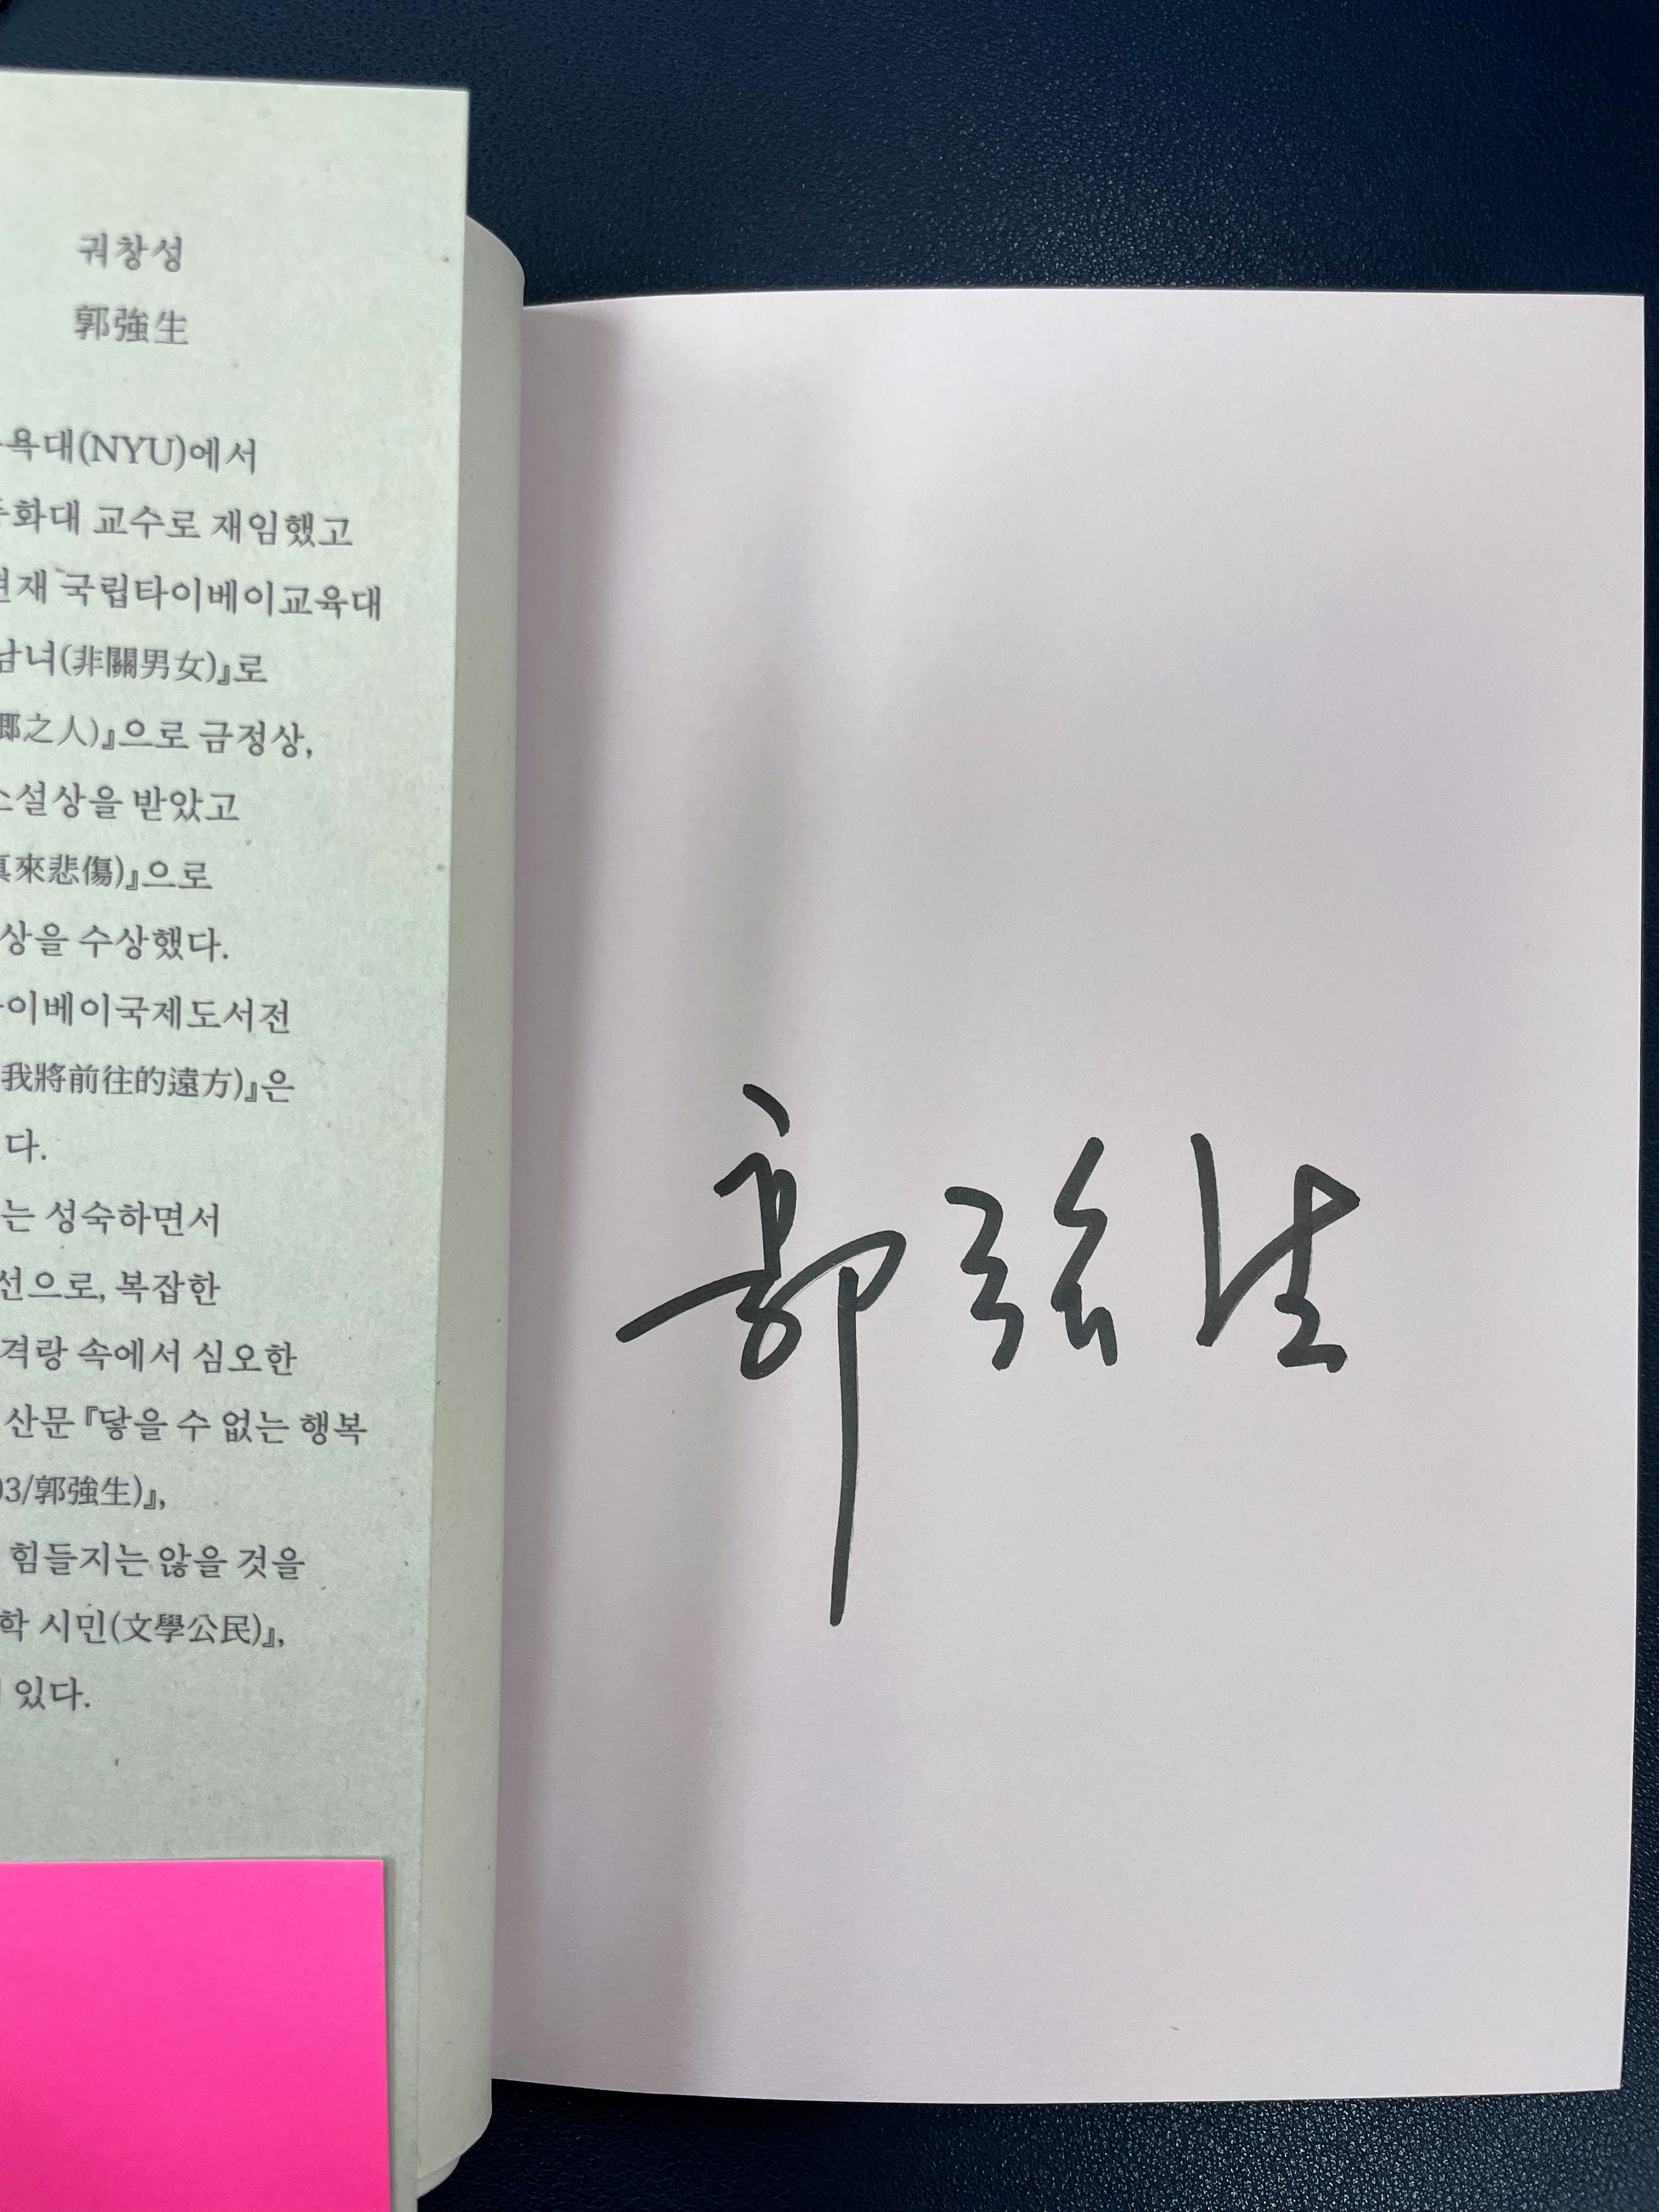 궈창성
郭強生
욕대(NYU)에서
화대 교수로 재임했고
현재 국립타이베이교육대
남녀(非關男女)』로
鄕之人)』으로 금정상,
소설상을 받았고
來悲傷)』으로
상을 수상했다.
이베이국제도서전
我將前往的遠方)』은
다.
는 성숙하면서
선으로, 복잡한
격랑 속에서 심오한
산문 『닿을 수 없는 행복
03/郭強生)』,
힘들지는 않을 것을
학 시민(文學公民)』,
있다.
郭強生